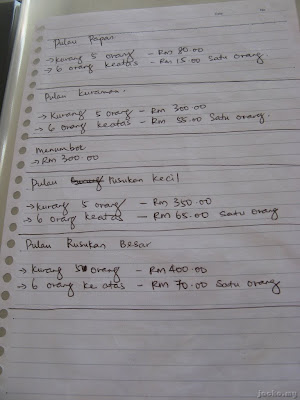 Pulau Papan
→ kurang 5 orang - RM 80.00
→ 6 orang keatas - RM 15.00 satu orang
Pulau Kuraman.
→ Kurang 5 orang - RM 300.00
→ 6 orang keatas - RM 55.00 satu orang.
Menumbok
→ RM 300.00
Pulau Rusukan Kecil
→ kurang 5 orang - RM 350.00
→ 6 orang keatas - RM 65.00 satu orang
Pulau Rusukan Besar
→ Kurang 5 orang - RM 400.00
→ 6 orang ke atas - RM 70.00 satu orang